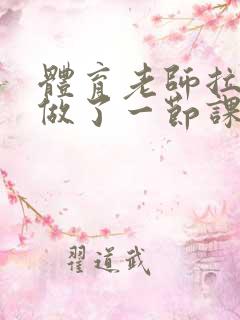 體育老師拉
做了一節課
翟道武